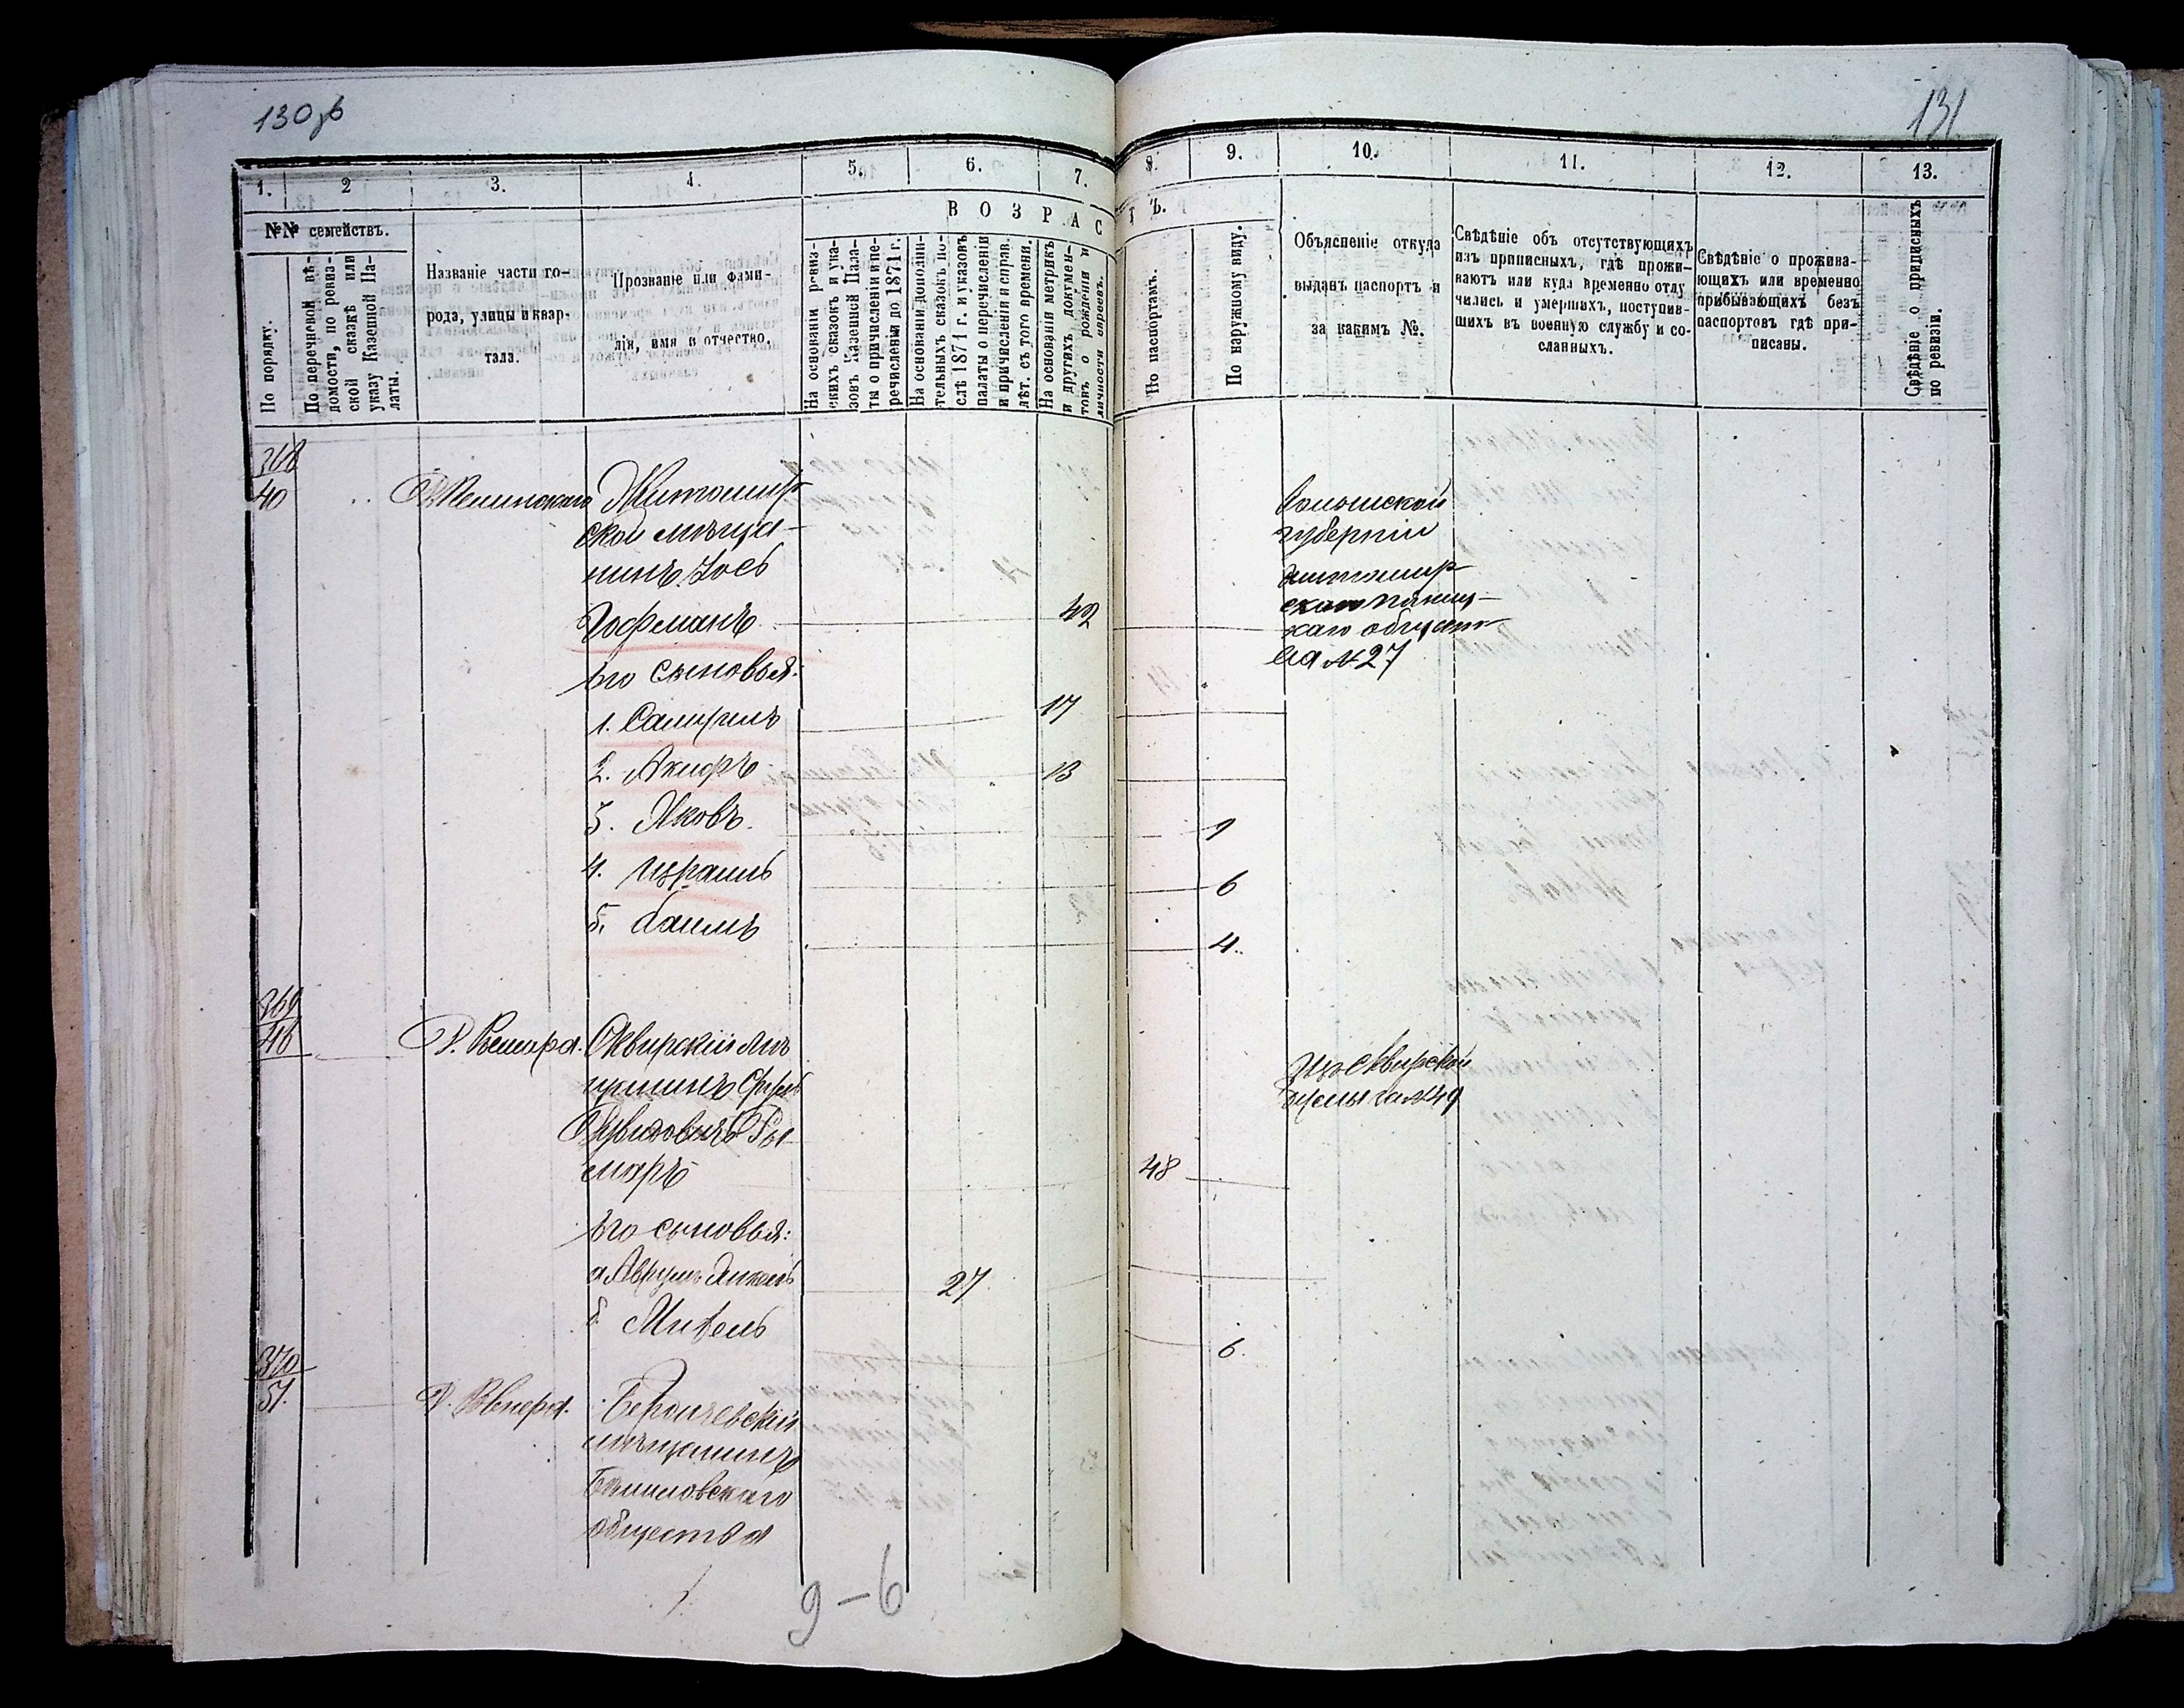 130об
131
1.
2
3.
4.
5.
6.
7.
8.
9.
10.
11.
12.
13.
В О З Р А С Т Ъ.
№№ семействъ.
По порядку.
По перечневой вѣ-
домости, по ревиз-
ской сказкѣ или
указу Казенной Па-
латы.
Названіе части го-
рода, улицы и квар-
тала.
Прозваніе или фами-
лія, имя и отчество.
На основаніи ревиз-
скихъ сказокъ и ука-
зовъ Казенной Пала-
ты о причисленіи и пе-
речислены до 1871 г.
На основаніи дополни-
тельныхъ сказокъ по-
слѣ 1871 г. и указовъ
палаты о перечисленіи
и причисленіи и справ.
лѣт. съ того времени.
На основаніи метрикъ
и другихъ докумен-
товъ о рожденіи и
личности евреевъ.
По паспортамъ.
По наружному виду.
Объясненіе откуда
выданъ паспортъ и
за какимъ №.
Свѣдѣніе объ отсутствующихъ
изъ приписныхъ, гдѣ прожи-
ваютъ или куда временно отлу
чились и умершихъ, поступив-
шихъ въ военную службу и со-
сланныхъ.
Свѣдѣніе о прожива-
ющихъ или временно
прибывающихъ безъ
паспортовъ гдѣ при-
писаны.
Свѣдѣніе о приписныхъ
по ревизіи.
368
40
Житомир-
ской мѣща-
нинъ Іось
Гофманъ
42
Волынской
губерніи
житомир-
скаго
каго общест-
ва № 27
Его сыновья:
1. Самуилъ
17
2.
13
3. Яковъ
9
4. Израиль
6
5. Хаимъ
4
369
48
Сквирскій мѣ
щанинъ
Рувиновичъ Ры
маръ
48
Изъ Сквирской
№ 49
Его сыновья:
а Аврумъ Янкель
27
б
6
370
51.
Бердичевскій
мѣщанинъ
общества
9-6